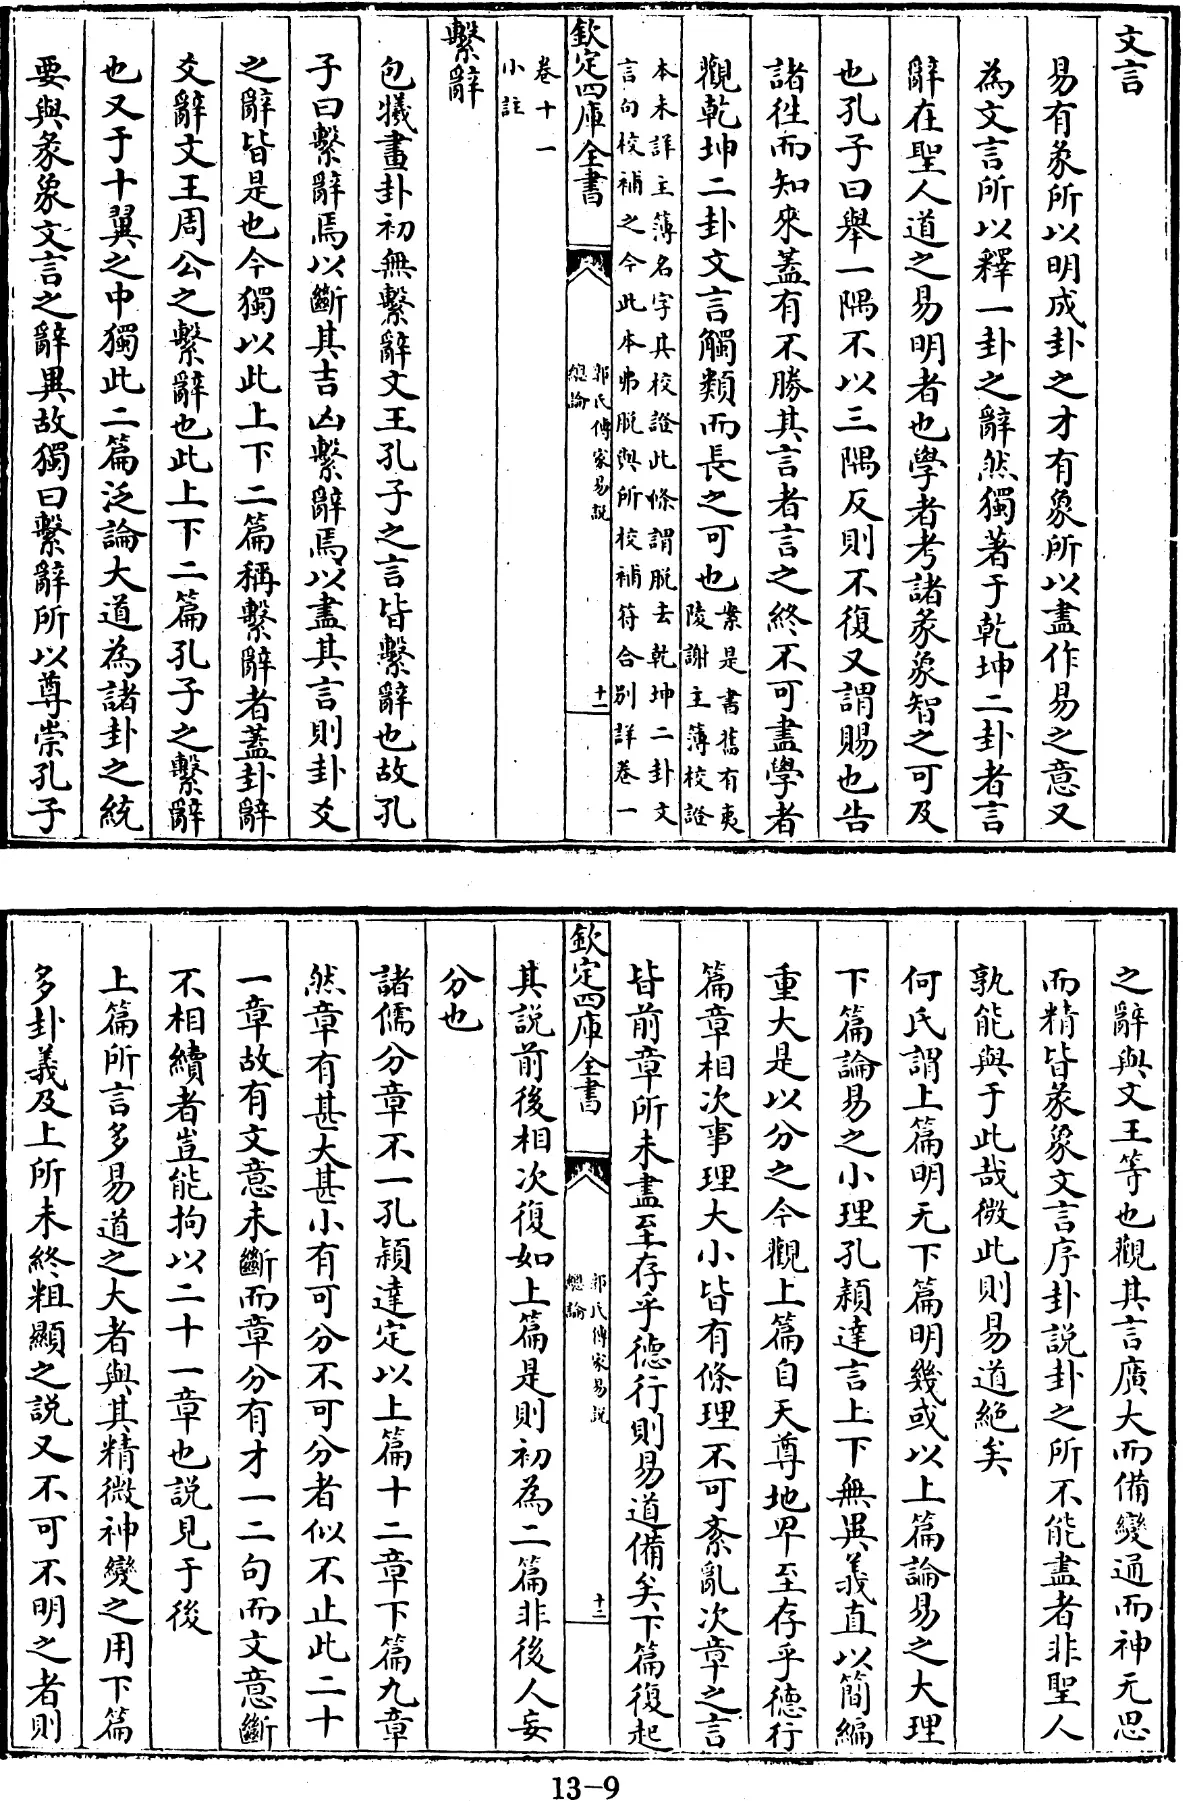 文言
易有象所以明成卦之才有象所以盡作易之意又
為文言所以釋一卦之辭然獨著于乾坤二卦者言
辭在聖人道之易明者也學者考諸彖象智之可及
也孔子曰舉一隅不以三隅反則不復又謂賜也告
諸徃而知來蓋有不勝其言者言之終不可盡學者
觀乾坤二卦文言觸類而長之可也案是書舊有夷
陵謝主薄校證
本未詳主薄名字其校證此條謂脱去乾坤二卦文
言句校補之今此本弗脱與所校補符合别詳卷一
欽定四庫全書
郭氏傳家易説
總論
十一
卷十一
小註
繫辭
包犧畫卦初無繫辭文王孔子之言皆繫辭也故孔
子曰繫辭焉以斷其吉凶繫辭焉以盡其言則卦爻
之辭皆是也今獨以此上下二篇稱繫辭者蓋卦辭
爻辭文王周公之繫辭也此上下二篇孔子之繫辭
也又于十翼之中獨此二篇泛論大道為諸卦之統
要與彖象文言之辭異故獨曰繫辭所以尊崇孔子
之辭與文王等也觀其言廣大而備變通而神无思
而精皆彖象文言序卦説卦之所不能盡者非聖人
孰能與于此哉微此則易道絶矣
何氏謂上篇明无下篇明幾或以上篇論易之大理
下篇論易之小理孔頴達言上下無異義直以簡編
重大是以分之今觀上篇自天尊地卑至存乎德行
篇章相次事理大小皆有條理不可紊亂次章之言
皆前章所未盡至存乎德行則易道備矣下篇復起
欽定四庫全書
郭氏傳家易説
總論
十二
其説前後相次復如上篇是則初為二篇非後人妄
分也
諸儒分章不一孔頴達定以上篇十二章下篇九章
然章有甚大甚小有可分不可分者似不止此二十
一章故有文意未斷而章分有才一二句而文意斷
不相續者豈能拘以二十一章也説見于後
上篇所言多易道之大者與其精微神變之用下篇
多卦義及上所未終粗顯之説又不可不明之者則
13-9